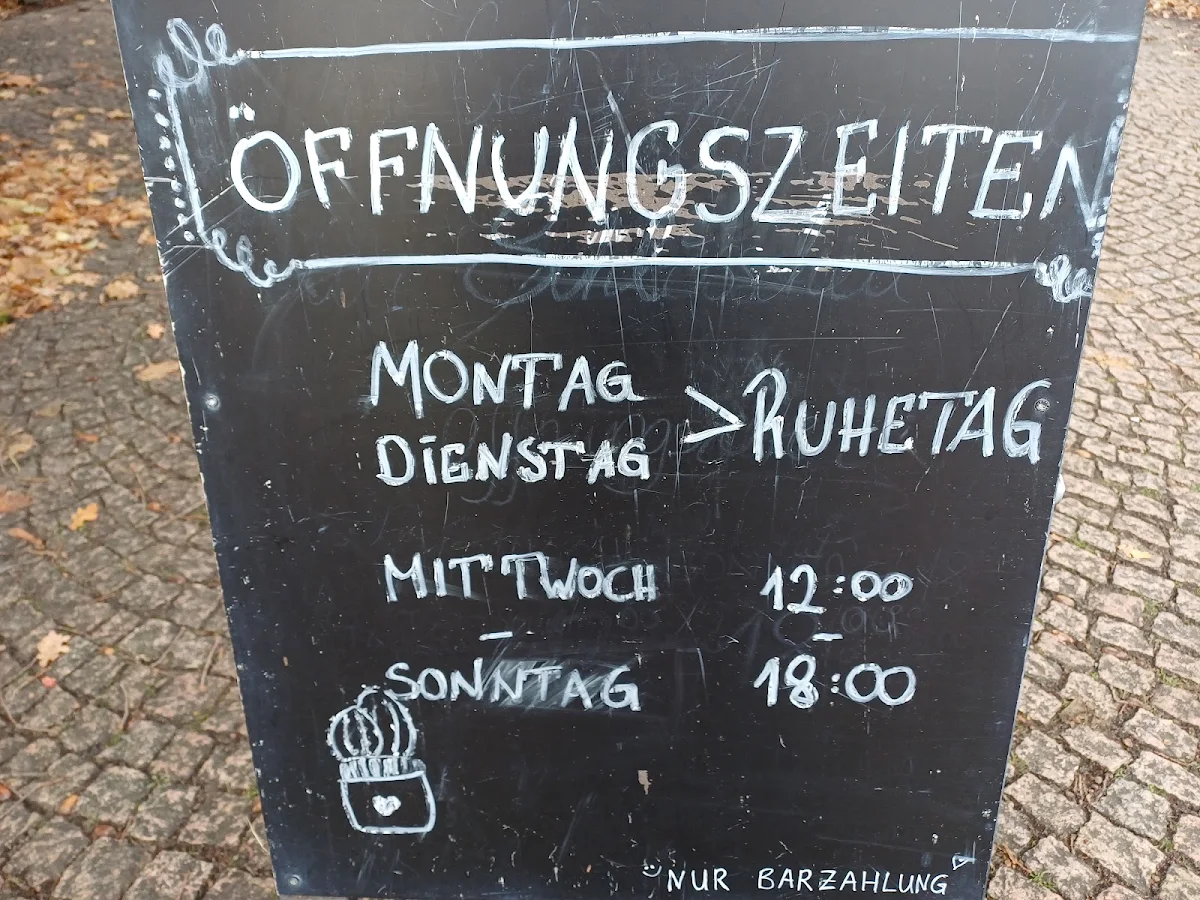 ÖFFNUNGSZEITEN
MONTAG
DIENSTAG
> RUHETAG
MITTWOCH 12:00
– –
SONNTAG 18:00
NUR BARZAHLUNG